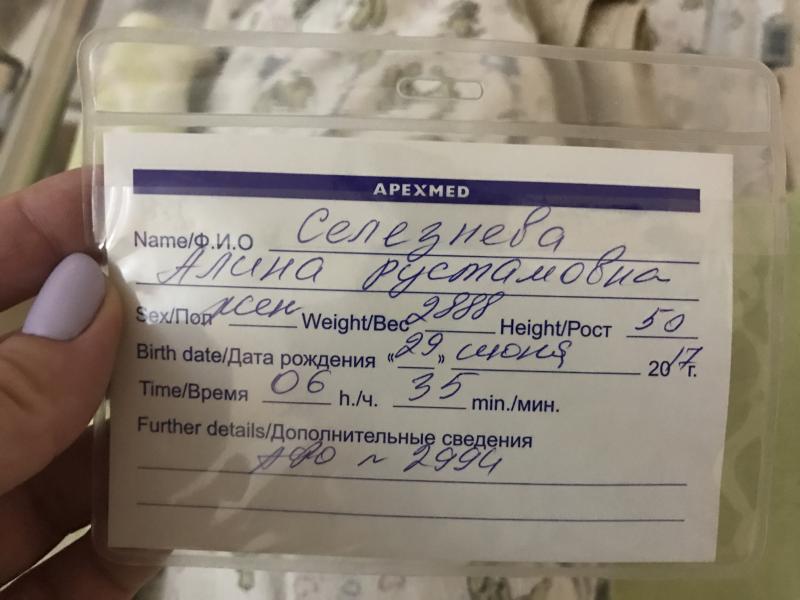 APEXMED
Name/Ф.И.О Селезнева
Алина Рустамовна
Sex/Пол жен Weight/Вес 2888 Height/Рост 50
Birth date/Дата рождения «29» июня 2017 г.
Time/Время 06 h./ч. 35 min./мин.
Further details/Дополнительные сведения
~ 2994